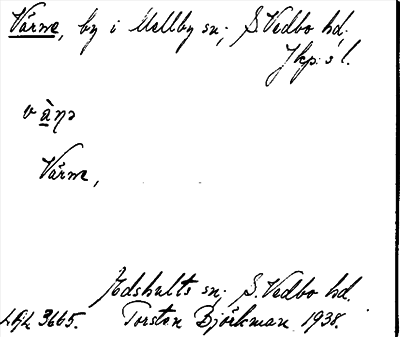 Värne, by i Mellby sn; S. Vedbo hd.
Jkp:s l.
Värne,
Edshults sn; S. Vedbo hd.
3665. Torsten Björkman 1938.